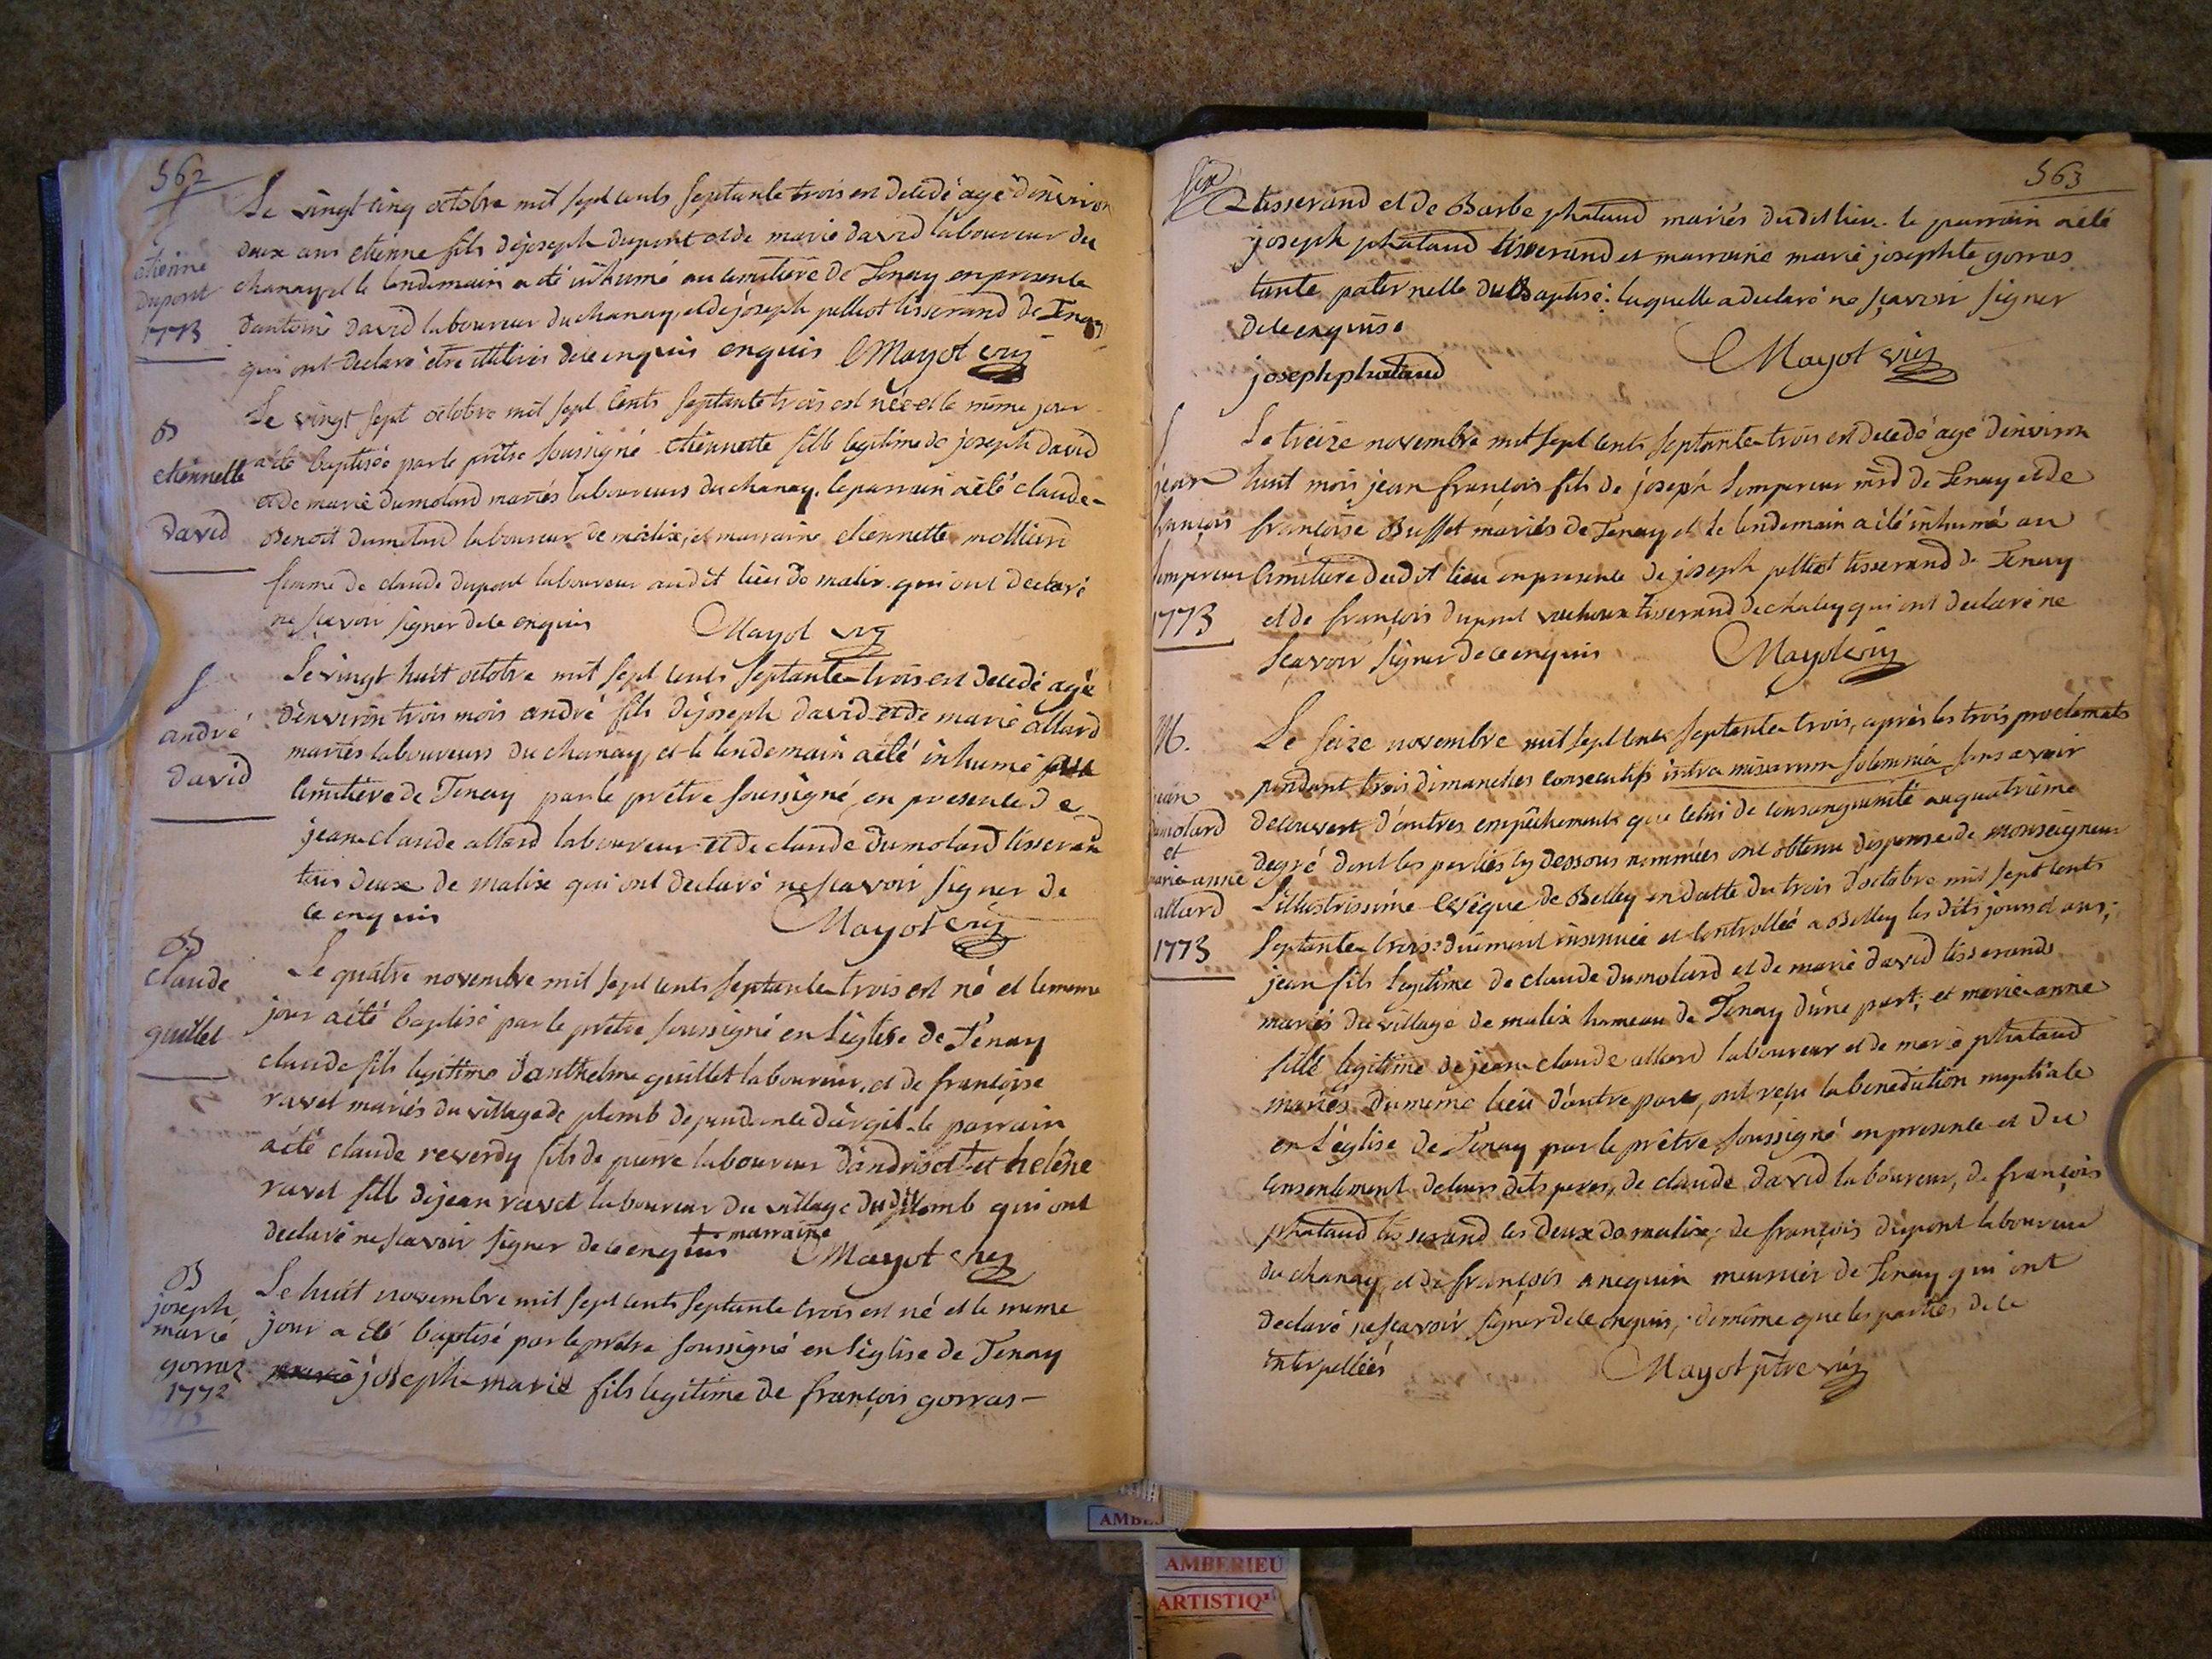 562
S
etienne
dupont
1773
Le vingt cinq octobre mil sept cents septante trois est decedé agé d'environ
deux ans etienne fils de joseph dupont et de marie david laboureur du
chanay et le lendemain a été inhumé au cimetiere de Tenay en presence
d'antoine david laboureur du chanay et de joseph pelliot tisserand de Tenay
qui ont declaré etre illiteres de ce enquis enquis Mayot
B
etiennette
david
Le vingt sept octobre mil sept cents septante trois est née et le même jour
a été baptisée par le prêtre soussigné etiennette fille legitime de joseph david
et de marie dumolard mariés laboureurs du chanay. le parrain a été claude-
Benoit dumolard laboureur de malix, et marraine etiennette molliard
femme de claude dupont laboureur audit lieu de malix qui ont declaré
ne sçavoir signer de ce enquis Mayot
S
andré
david
Le vingt huit octobre mil sept cents septante-trois est decedé agé
d'environ trois mois andré fils de joseph david et de marie allard
mariés laboureurs du chanay, et le lendemain a été inhumé
cimetiere de Tenay par le prêtre soussigné, en presence de
jean-claude allard laboureur et de claude dumolard tisserand
tous deux de malix qui ont declaré ne scavoir signer de
ce enquis Mayot
B
claude
guillet
Le quatre novembre mil sept cents septante-trois est né et le meme
jour a été baptisé par le prêtre soussigné en l'église de Tenay
claude fils legitime d'anthelme guillet laboureur, et de françoise
ravet mariés du village de plomb dependance d'argit. le parrain
a été claude reverdy fils de pierre laboureur d'andriset + et helene
ravet fille de jean ravet laboureur du village dudit plomb qui ont
declaré ne scavoir signer de ce enquis + marraine Mayot
B
joseph
marie
gorras
1772
Le huit novembre mil sept cents septante trois est né et le meme
jour a été baptisé par le prêtre soussigné en l'église de Tenay
joseph-marie fils legitime de françois gorras-
563
tisserand et de Barbe phataud mariés dudit lieu. le parrain a été
joseph phataud tisserand et marraine marie josephte gorras
tante paternelle du Baptisé: laquelle a declaré ne sçavoir signer
de ce enquise
joseph phataud Mayot
S
jean
françois
lempereur
1773
Le treize novembre mil sept cents septante-trois est decedé agé d'environ
huit mois jean françois fils de joseph Lempereur mrd de Tenay et de
françoise Buffet mariés de Tenay et le lendemain a été inhumé au
cimetiere dudit lieu en presence de joseph pelliot tisserand de Tenay
et de françois dupont tisserand de chaley qui ont declaré ne
scavoir signer de ce enquis Mayot
M.
jean
dumolard
et
marie-anne
allard
1773
Le seize novembre mil sept cents septante-trois, après les trois proclamats
pendant trois dimanches consecutifs intra missarum solemnia sans avoir
decouvert d'autres empêchements que celui de consanguinité au quatrième
degré dont les parties cy dessous nommées ont obtenu dispense de monseigneur
L'illustrissime evêque de Belley en datte du trois d'octobre mil sept cents
septante-trois: duement insinuée et controlleé a Belley les dits jours et ans;
jean fils legitime de claude dumolard et de marie david tisserands
mariés du village de malix hameau de Tenay d'une part; et marie-anne
fille legitime de jean-claude allard laboureur et de marie phataud
mariés du meme lieu d'autre part, ont reçu la benediction nuptiale
en l'église de Tenay par le prêtre soussigné en presence et du
consentement de leurs dits peres, de claude david laboureur, de françois
phataud tisserand les deux de malix; de françois dupont laboureur
du chanay, et de françois anequin meunier de Tenay qui ont
declaré ne scavoir signer de ce enquis, de même que les parties de ce
interpellées Mayot ptre
AMBERIEU
ARTISTIQ